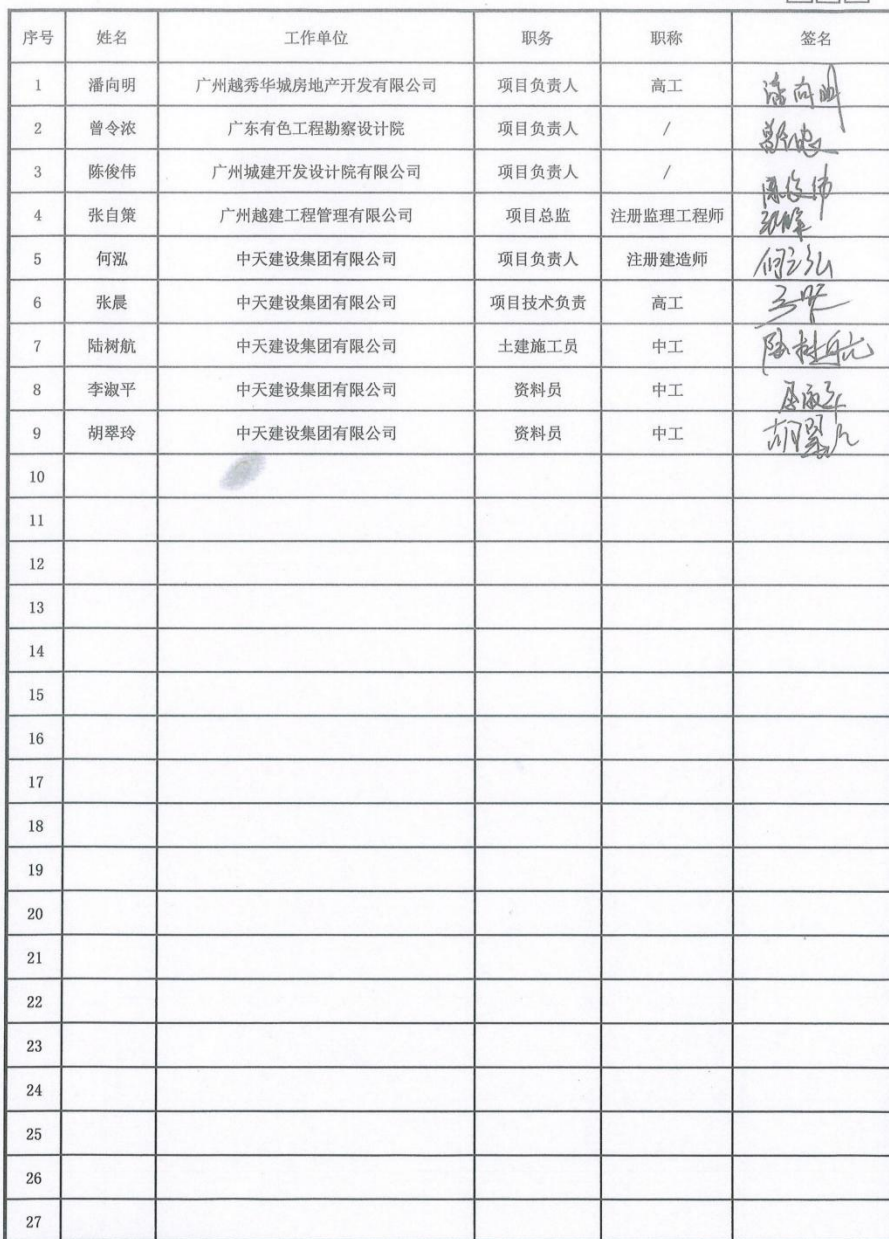 序号 姓名 工作单位 职务 职称 签名
1 潘向明 广州越秀华城房地产开发有限公司 项目负责人 高工 潘向明
2 曾令浓 广东有色工程勘察设计院 项目负责人 /
3 陈俊伟 广州城建开发设计院有限公司 项目负责人 / 陈俊伟
4 张自策 广州越建工程管理有限公司 项目总监 注册监理工程师
5 何泓 中天建设集团有限公司 项目负责人 注册建造师
6 张晨 中天建设集团有限公司 项目技术负责 高工
7 陆树航 中天建设集团有限公司 土建施工员 中工 陆树航
8 李淑平 中天建设集团有限公司 资料员 中工
9 胡翠玲 中天建设集团有限公司 资料员 中工
10
11
12
13
14
15
16
17
18
19
20
21
22
23
24
25
26
27